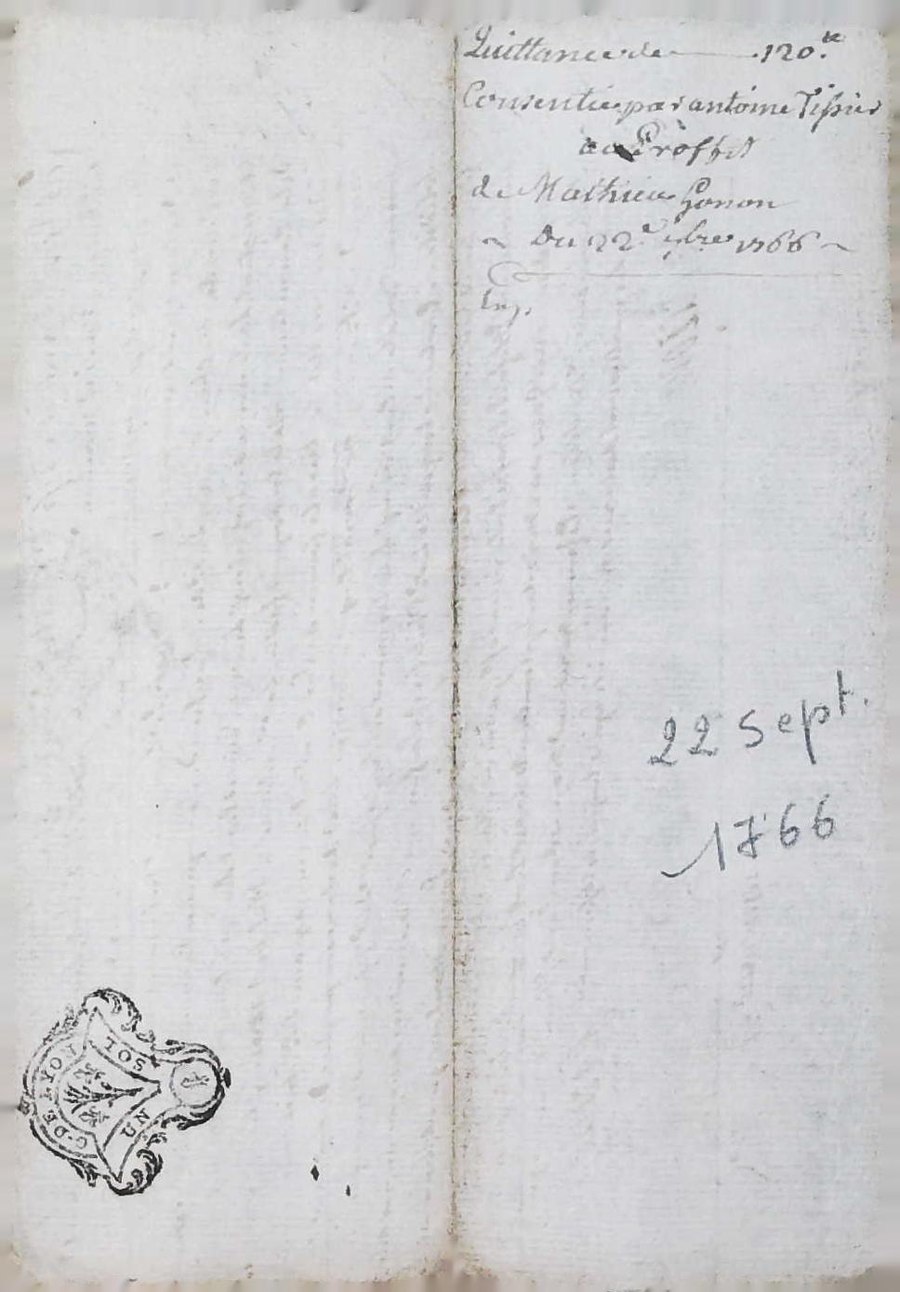 Quittance de 120.tt
Consentie par antoine Tissier
au Proffit
de Mathieu Gonon
~ Du 22e 7bre 1766 ~
Exp.
22 sept.
1766
G. DE LYON
UN SOL